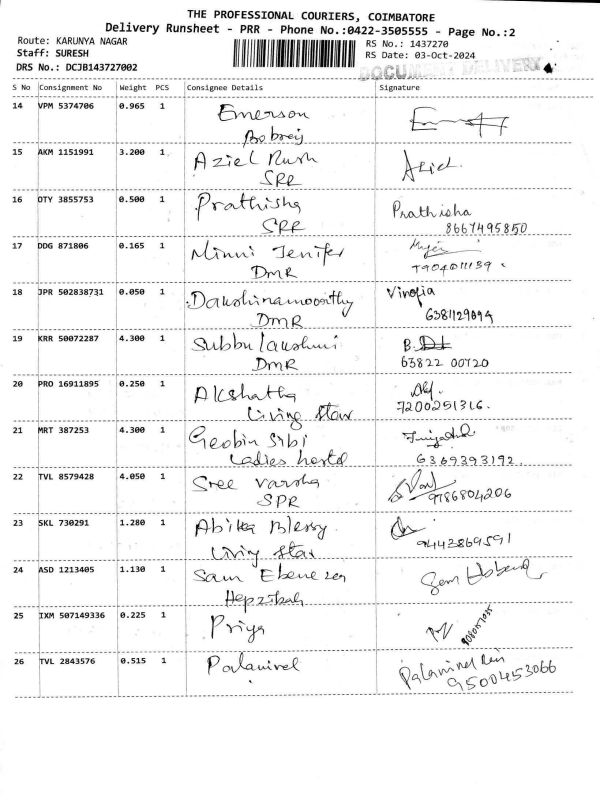 THE PROFESSIONAL COURIERS, COIMBATORE
Delivery Runsheet - PRR - Phone No.:0422-3505555 - Page No.:2
Route: KARUNYA NAGAR
RS No.: 1437270
Staff: SURESH
RS Date: 03-Oct-2024
DRS No.: DCJB143727002
DOCUMENT DELIVERY
S No Consignment No Weight PCS Consignee Details Signature
14 VPM 5374706 0.965 1 Emerson
15 AKM 1151991 3.200 1 Aziel Rush Aziel
SRR
16 OTY 3855753 0.500 1 Prathisha Prathisha
SRR 8667495850
17 DDG 871806 0.165 1 Minni Jenifer
DMR
18 JPR 502838731 0.050 1 Dakshinamoorthy
DMR 6381129094
19 KRR 50072287 4.300 1 Subbulakshmi B.
DMR 63822 00720
20 PRO 16911895 0.250 1 Akshatha
Living Star 7200251316.
21 MRT 387253 4.300 1 Geobin Sibi
Ladies hostel 6369393192
22 TVL 8579428 4.050 1 Sree Varsha
SPR 9786804206
23 SKL 730291 1.280 1 Abika Blessy
Living Star 9443869591
24 ASD 1213405 1.130 1 Sam Ebenezer
Hepzibah
25 IXM 507149336 0.225 1 Priya
26 TVL 2843576 0.515 1 Palanivel
9500453066